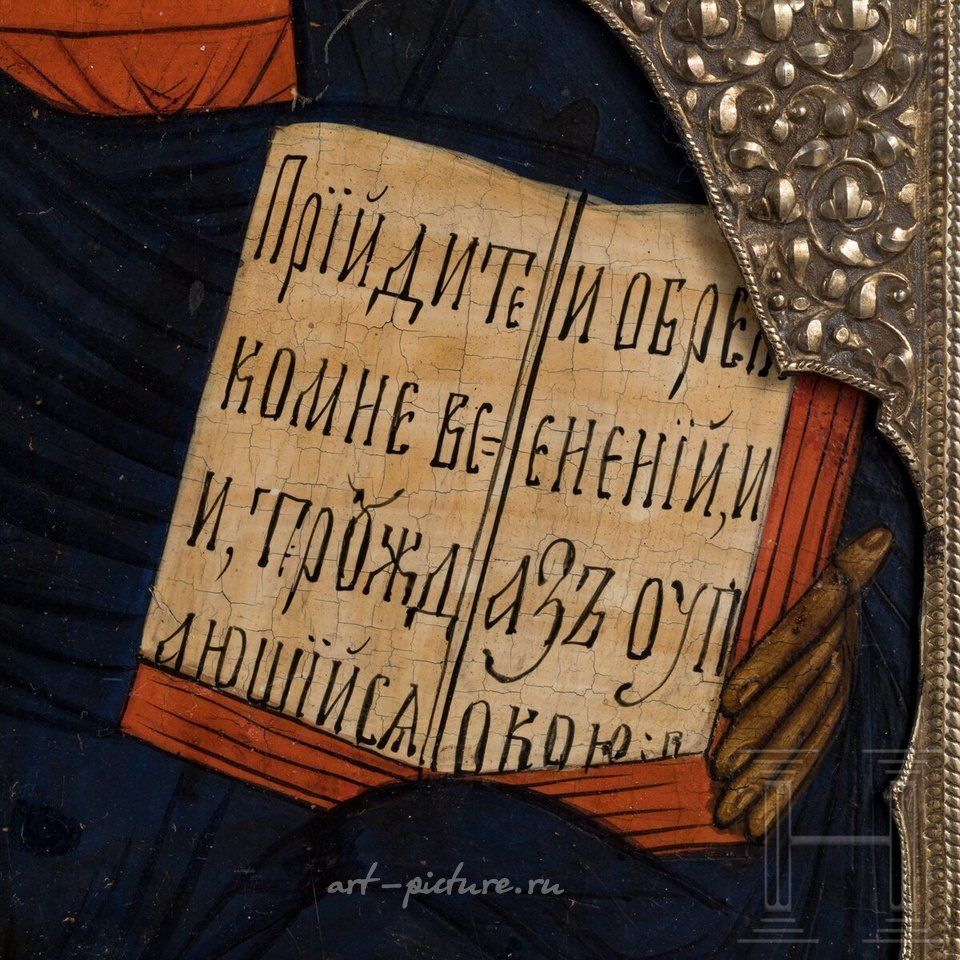 Прїйдите
комне вс=
и, трꙋжд
ающїйсѧ
и обрем
ененїй, и
азъ оуп
окою:
art-picture.ru